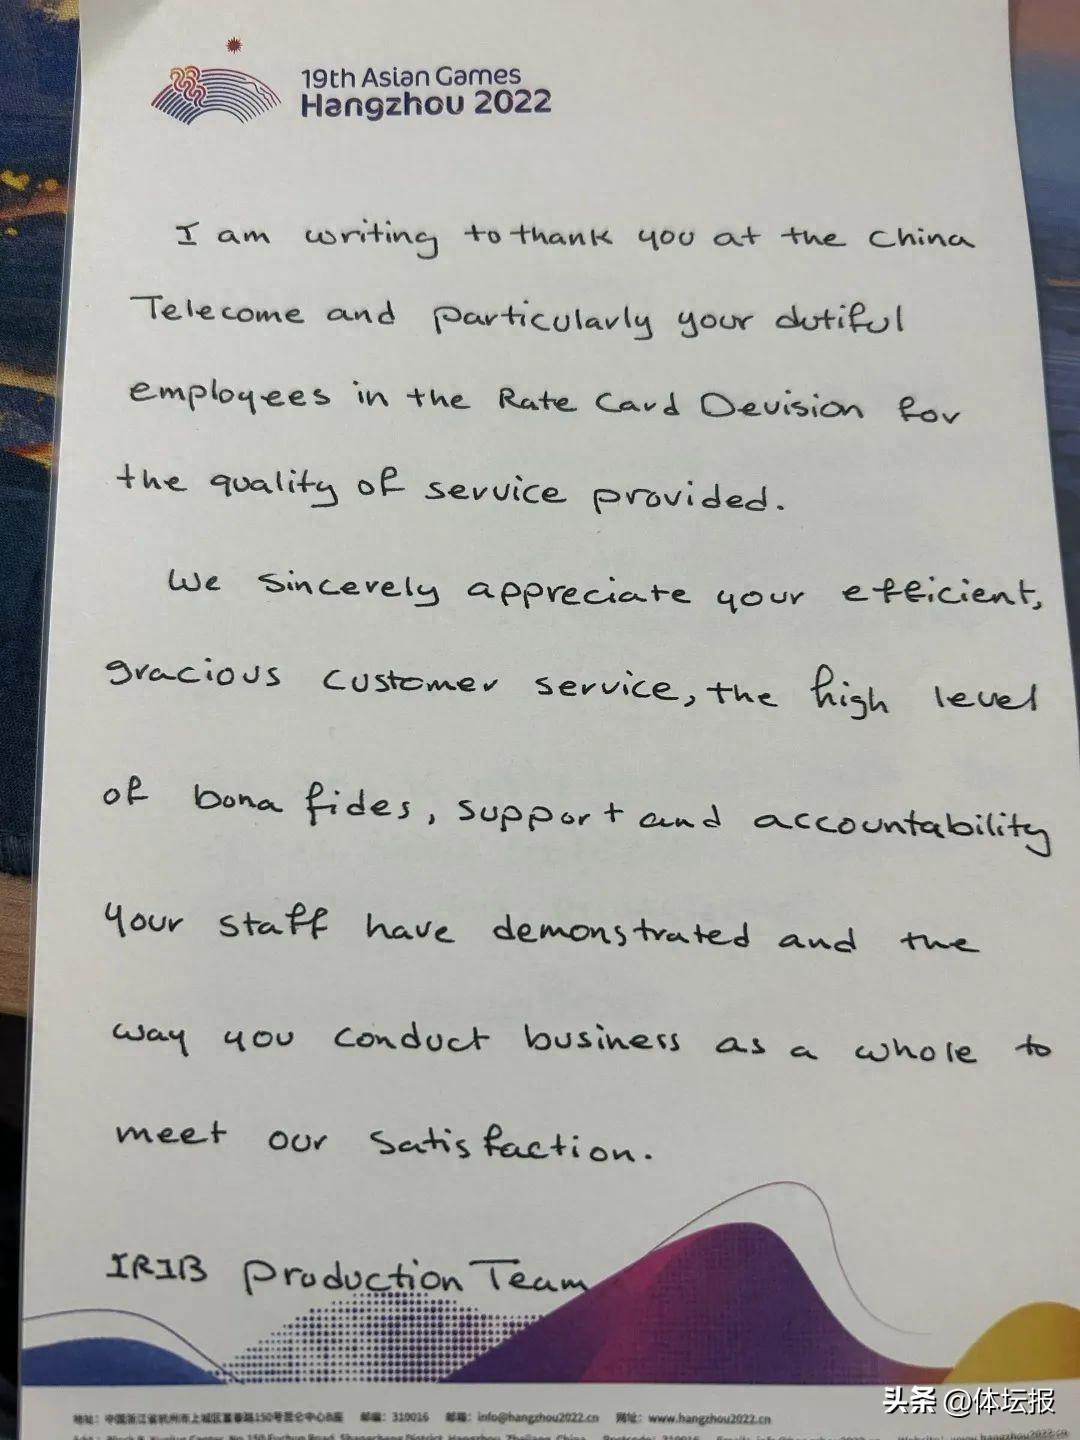 19th Asian Games
Hangzhou 2022
I am writing to thank you at the China
Telecome and particularly your dutiful
employees in the Rate Card Devision for
the quality of service provided.
We sincerely appreciate your efficient,
gracious customer service, the high level
of bona fides, support and accountability
your staff have demonstrated and the
way you conduct business as a whole to
meet our satisfaction.
IRIB Production Team
地址：中国浙江省杭州市上城区富春路150号昆仑中心B座 邮编：310016 邮箱：info@hangzhou2022.cn 网址：www.hangzhou2022.cn
No.150 Fuchun Road, Shangcheng District, Hangzhou, Zhejiang, China Postcode: 310016
头条 @体坛报